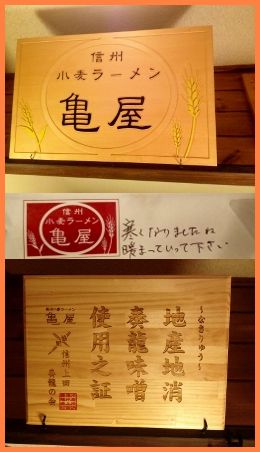 信州
小麦ラーメン
亀屋
信州
小麦ラーメン
亀屋
寒くなりましたね
暖まっていって下さい
～なきりゅう～
地産地消
奏龍味噌
使用之証
亀屋
信州上田
奏龍の会